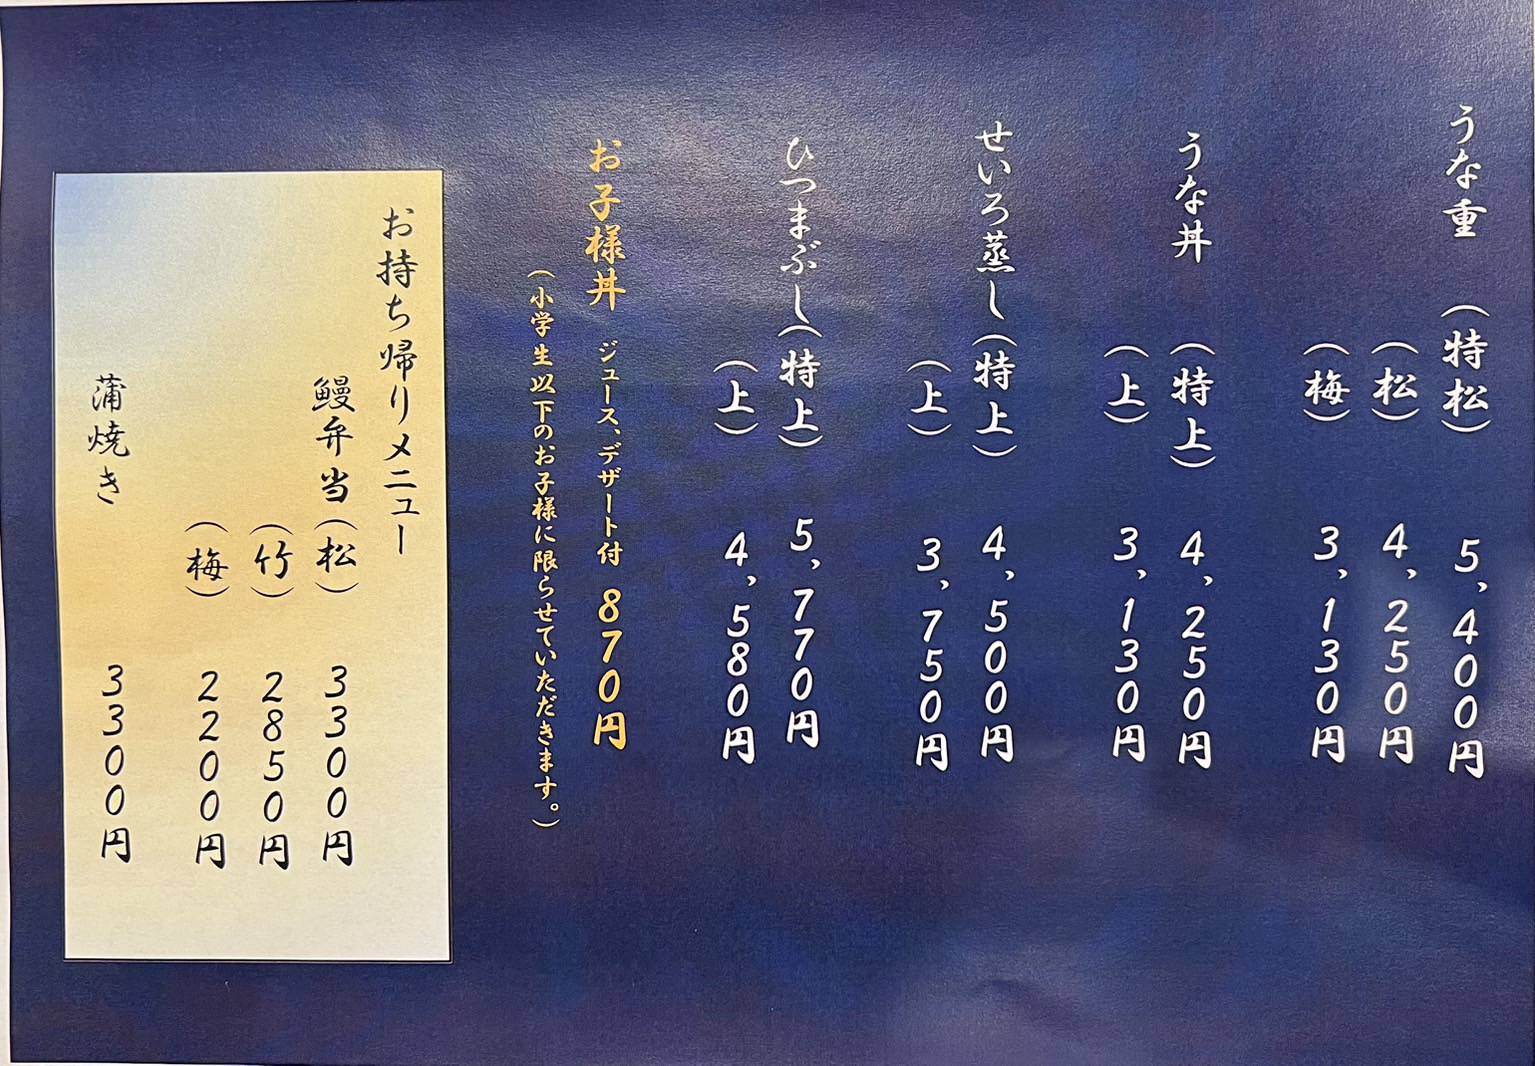 うな重 （特松） 5,400円
（松） 4,250円
（梅） 3,130円
うな丼 （特上） 4,250円
（上） 3,130円
せいろ蒸し（特上） 4,500円
（上） 3,750円
ひつまぶし（特上） 5,770円
（上） 4,580円
お子様丼 ジュース、デザート付 870円
（小学生以下のお子様に限らせていただきます。）
お持ち帰りメニュー
鰻弁当（松） 3300円
（竹） 2850円
（梅） 2200円
蒲焼き 3300円